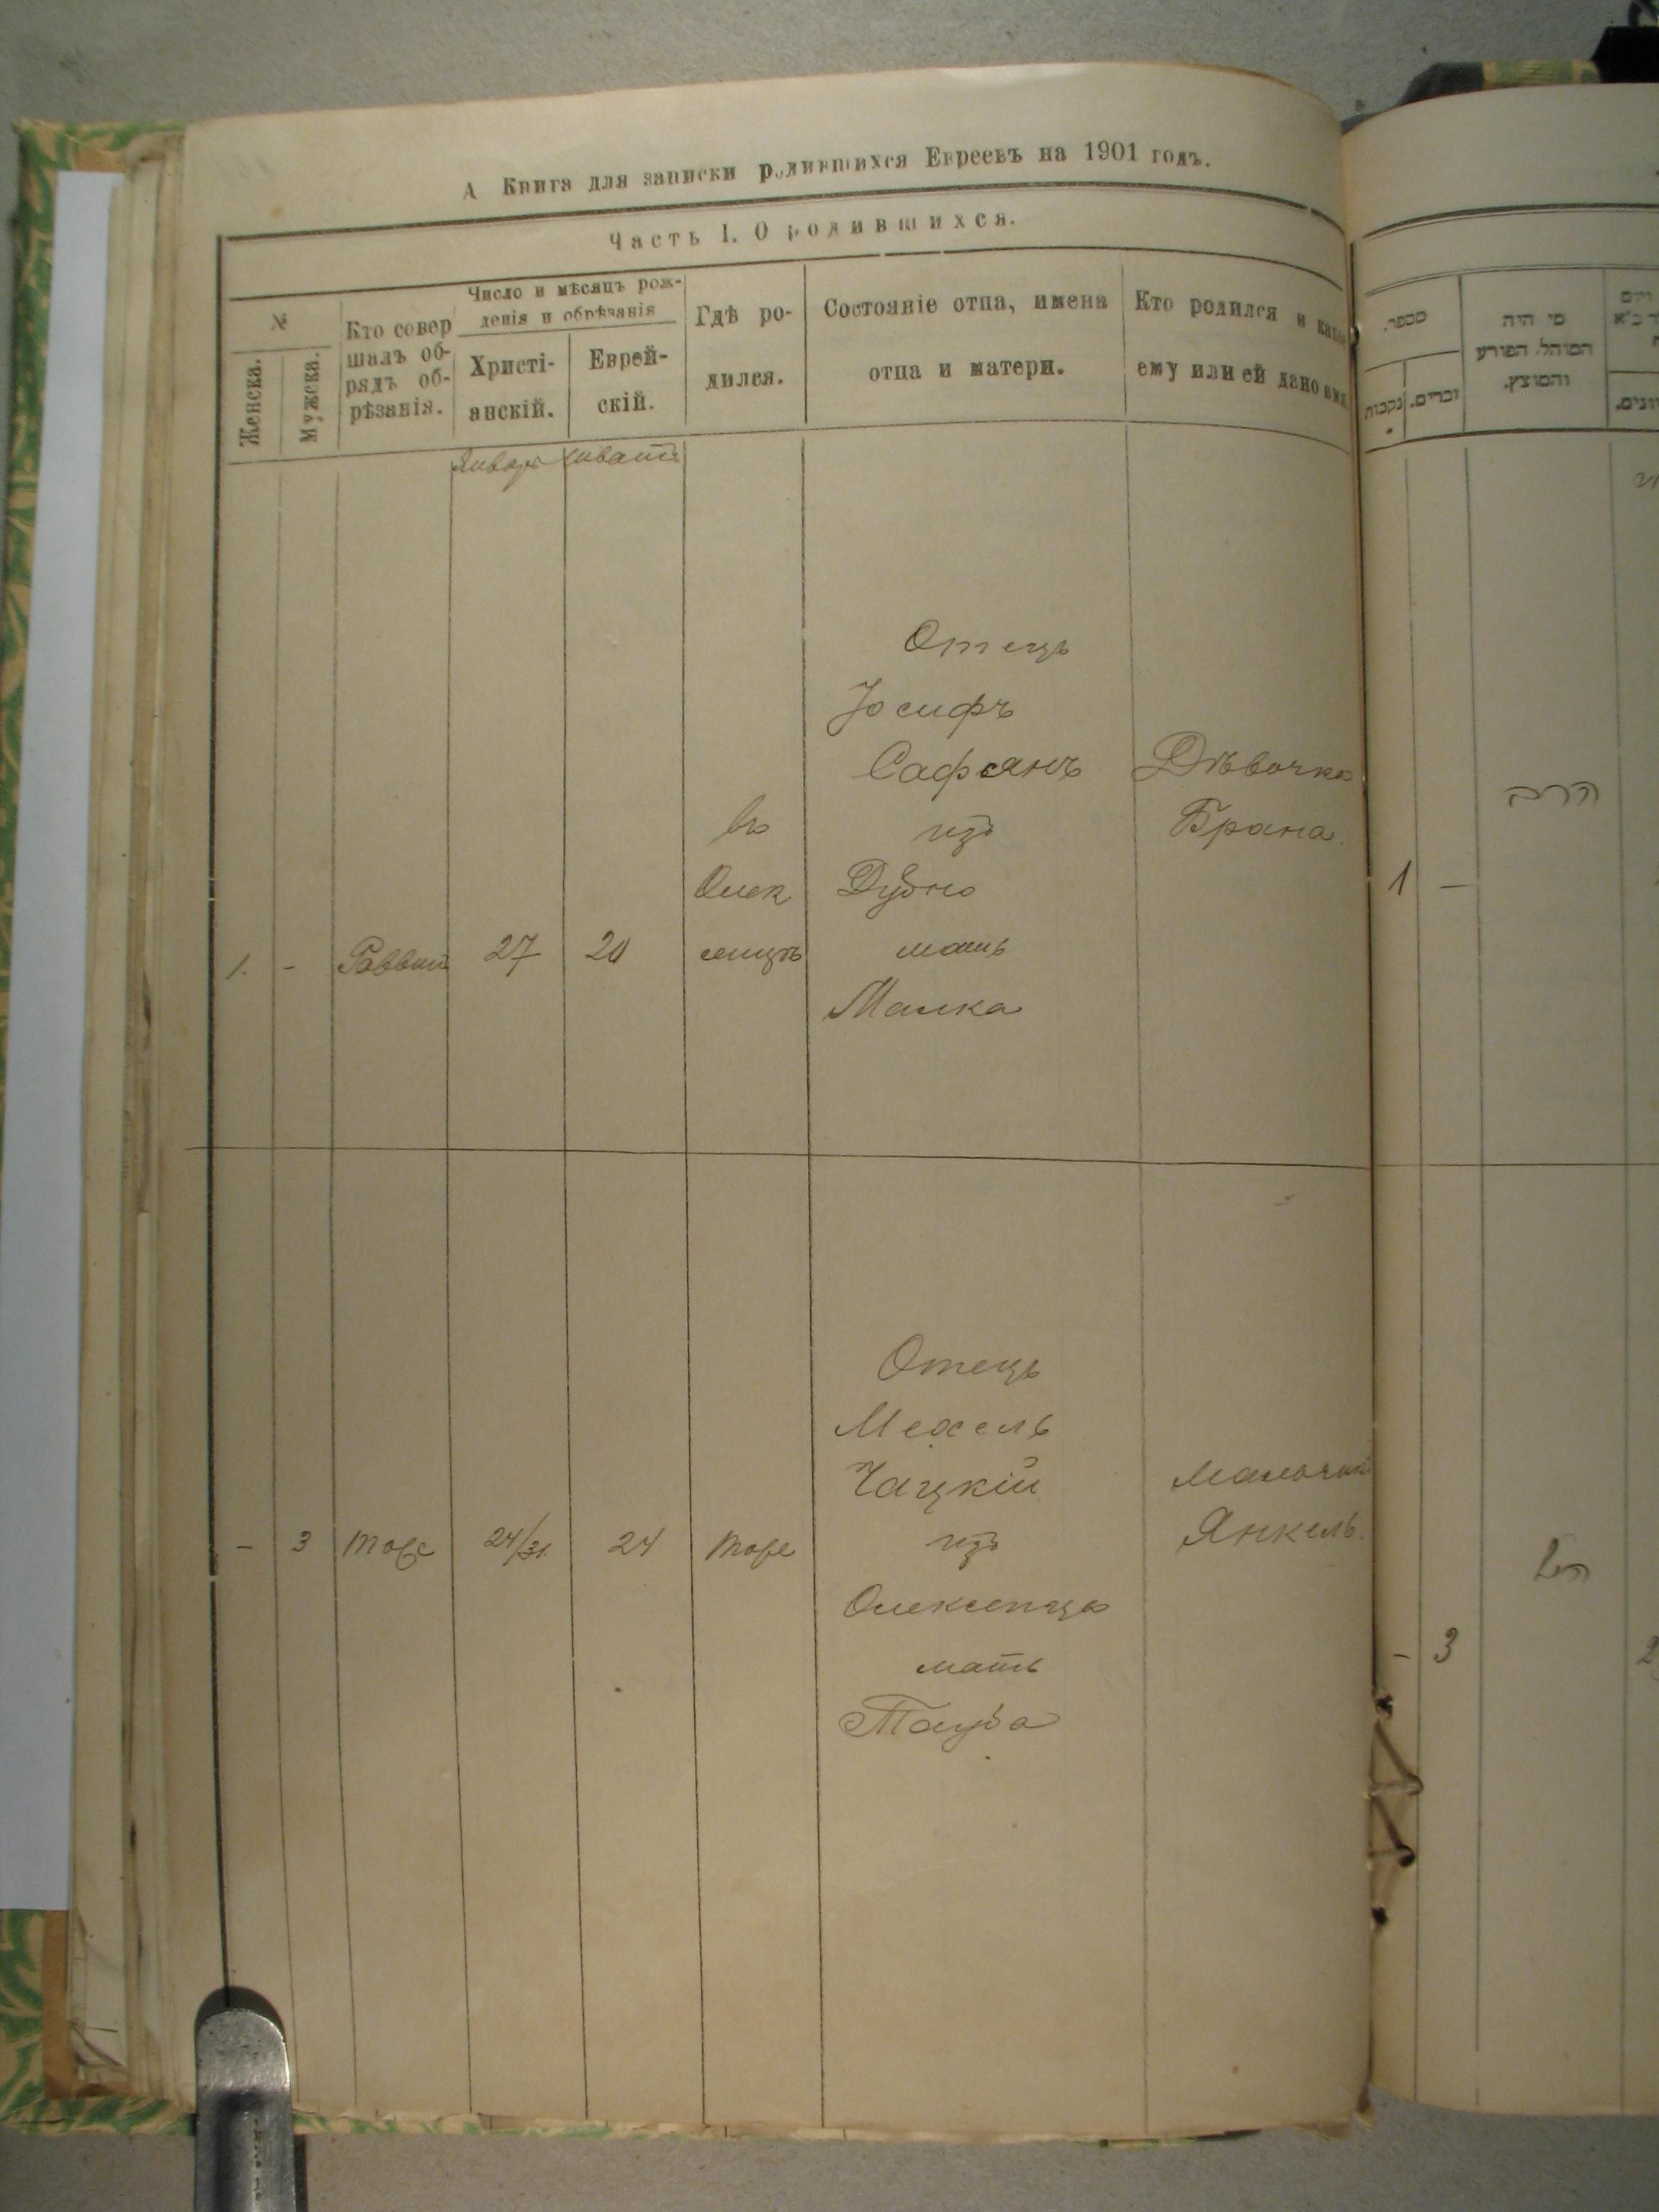 А Книга для записки родившихся Евреевъ на 1901 годъ.
Часть I. О родившихся.
№
Женска.
Мужска.
Кто совер
шалъ об-
рядъ об-
рѣзанія.
Число и мѣсяцъ рож-
денія и обрѣзанія
Христі-
анскій.
Еврей-
скій.
Гдѣ ро-
дился.
Состояніе отца, имена
отца и матери.
Кто родился и какое
ему или ей дано имя.
Январь
Шватъ
1.
-
Раввин
27
20
въ
Олек
синцѣ
Отецъ
Іосифъ
Сафянъ
изъ
Дубно
мать
Малка
Дѣвочка
Брана.
-
3
тоже
24/31.
24
тоже
Отецъ
Мехель
Чацкій
изъ
Олексинца
мать
Тауба
Мальчик
Янкель.
מספר.
נקבות
זכרים.
מי היה
המוהל הפורע
והמוצץ.
1
—
הרב
-
3
הנ״ל